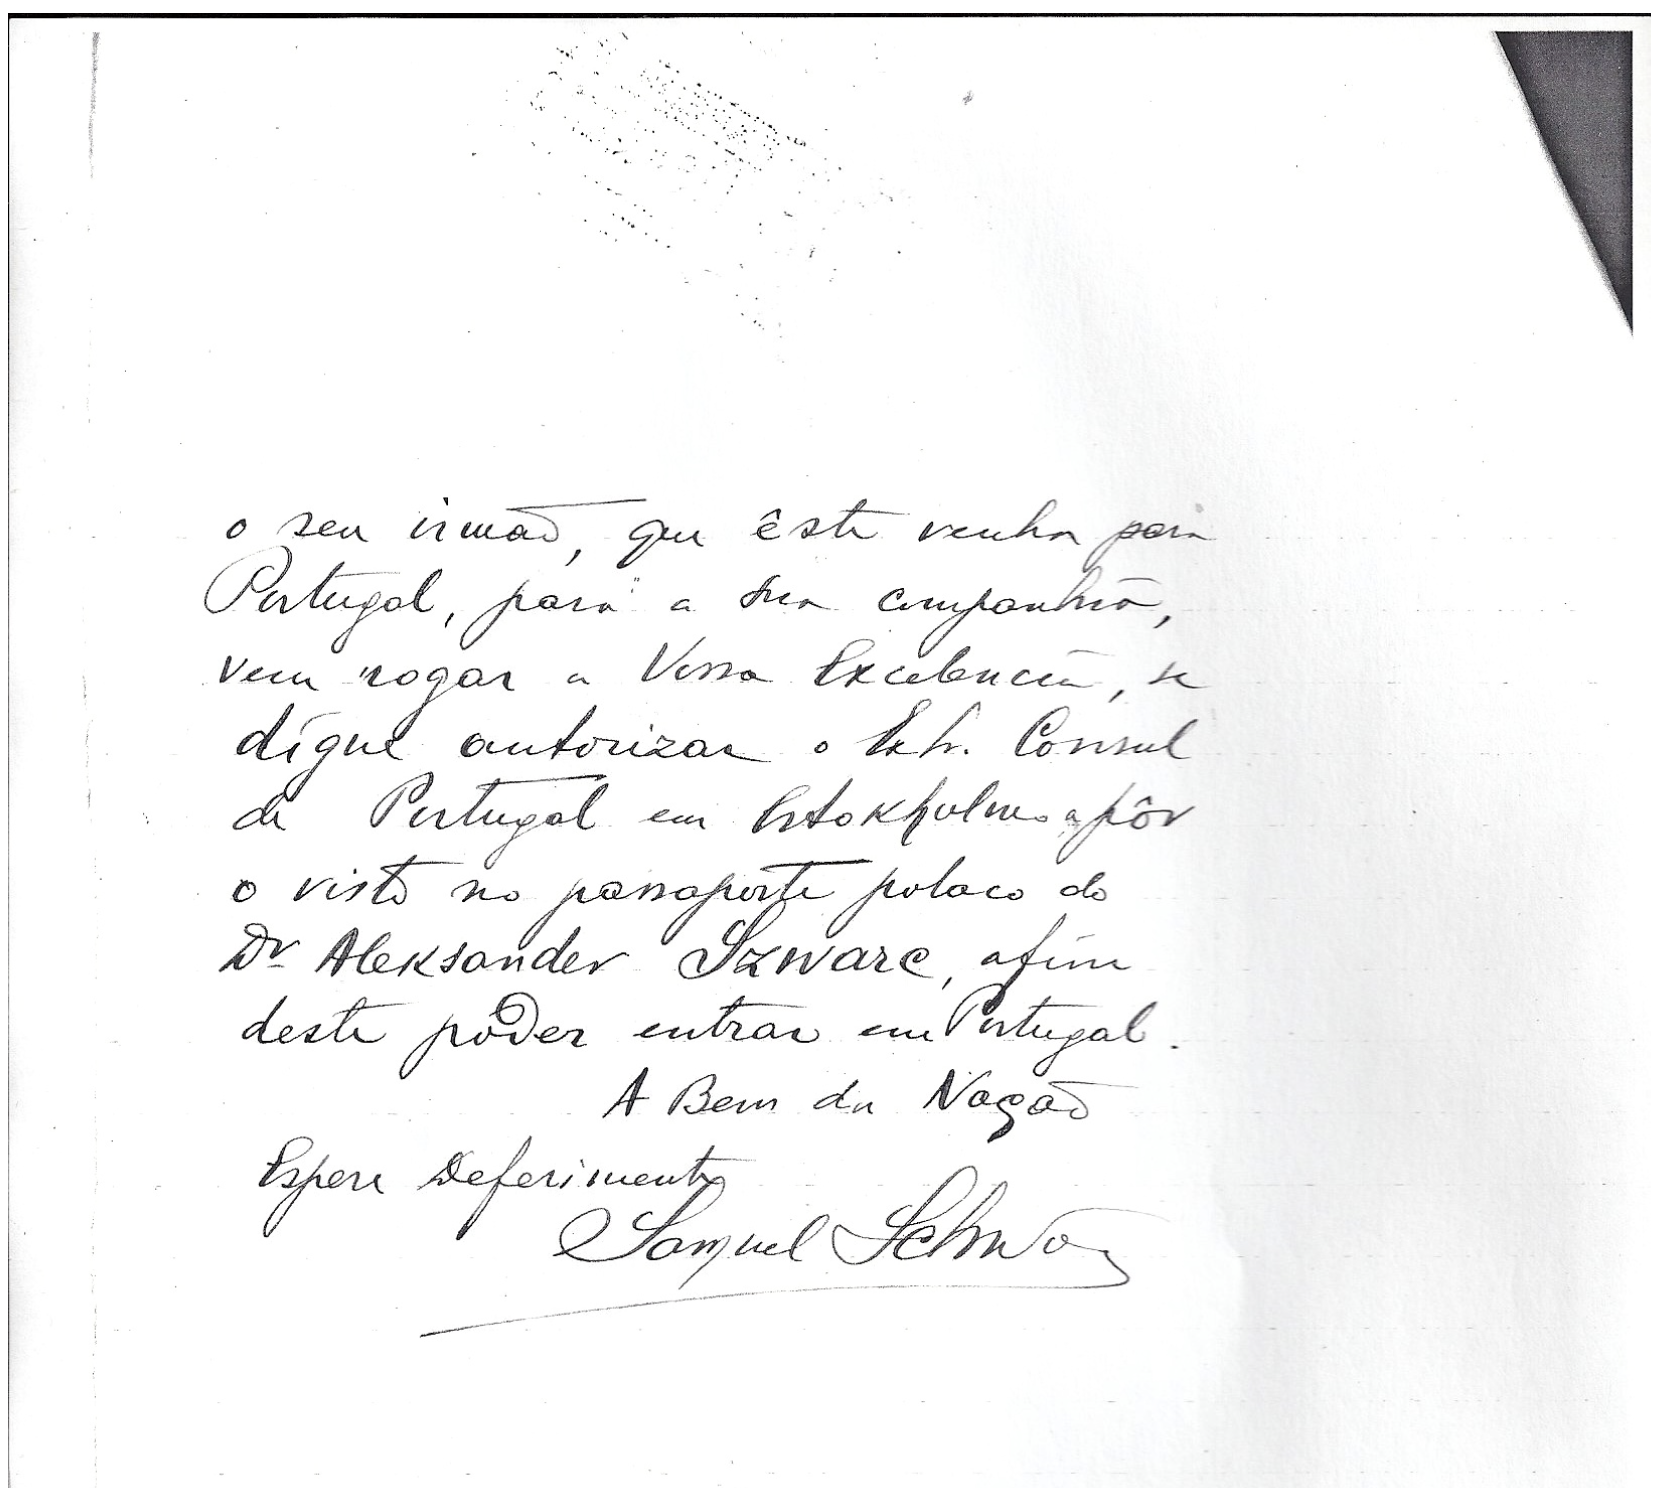 o seu irmão, que êste venha para
Portugal, para a sua companhia,
vem rogar a Vossa Excelencia, se
digne autorizar o Consul
de Portugal em Estokholmo a pôr
o visto no passaporte polaco do
Dr Aleksander Szwarc, afim
deste pôder entrar em Portugal.
A Bem da Nação
Espera Deferimento
Samuel Schwarz